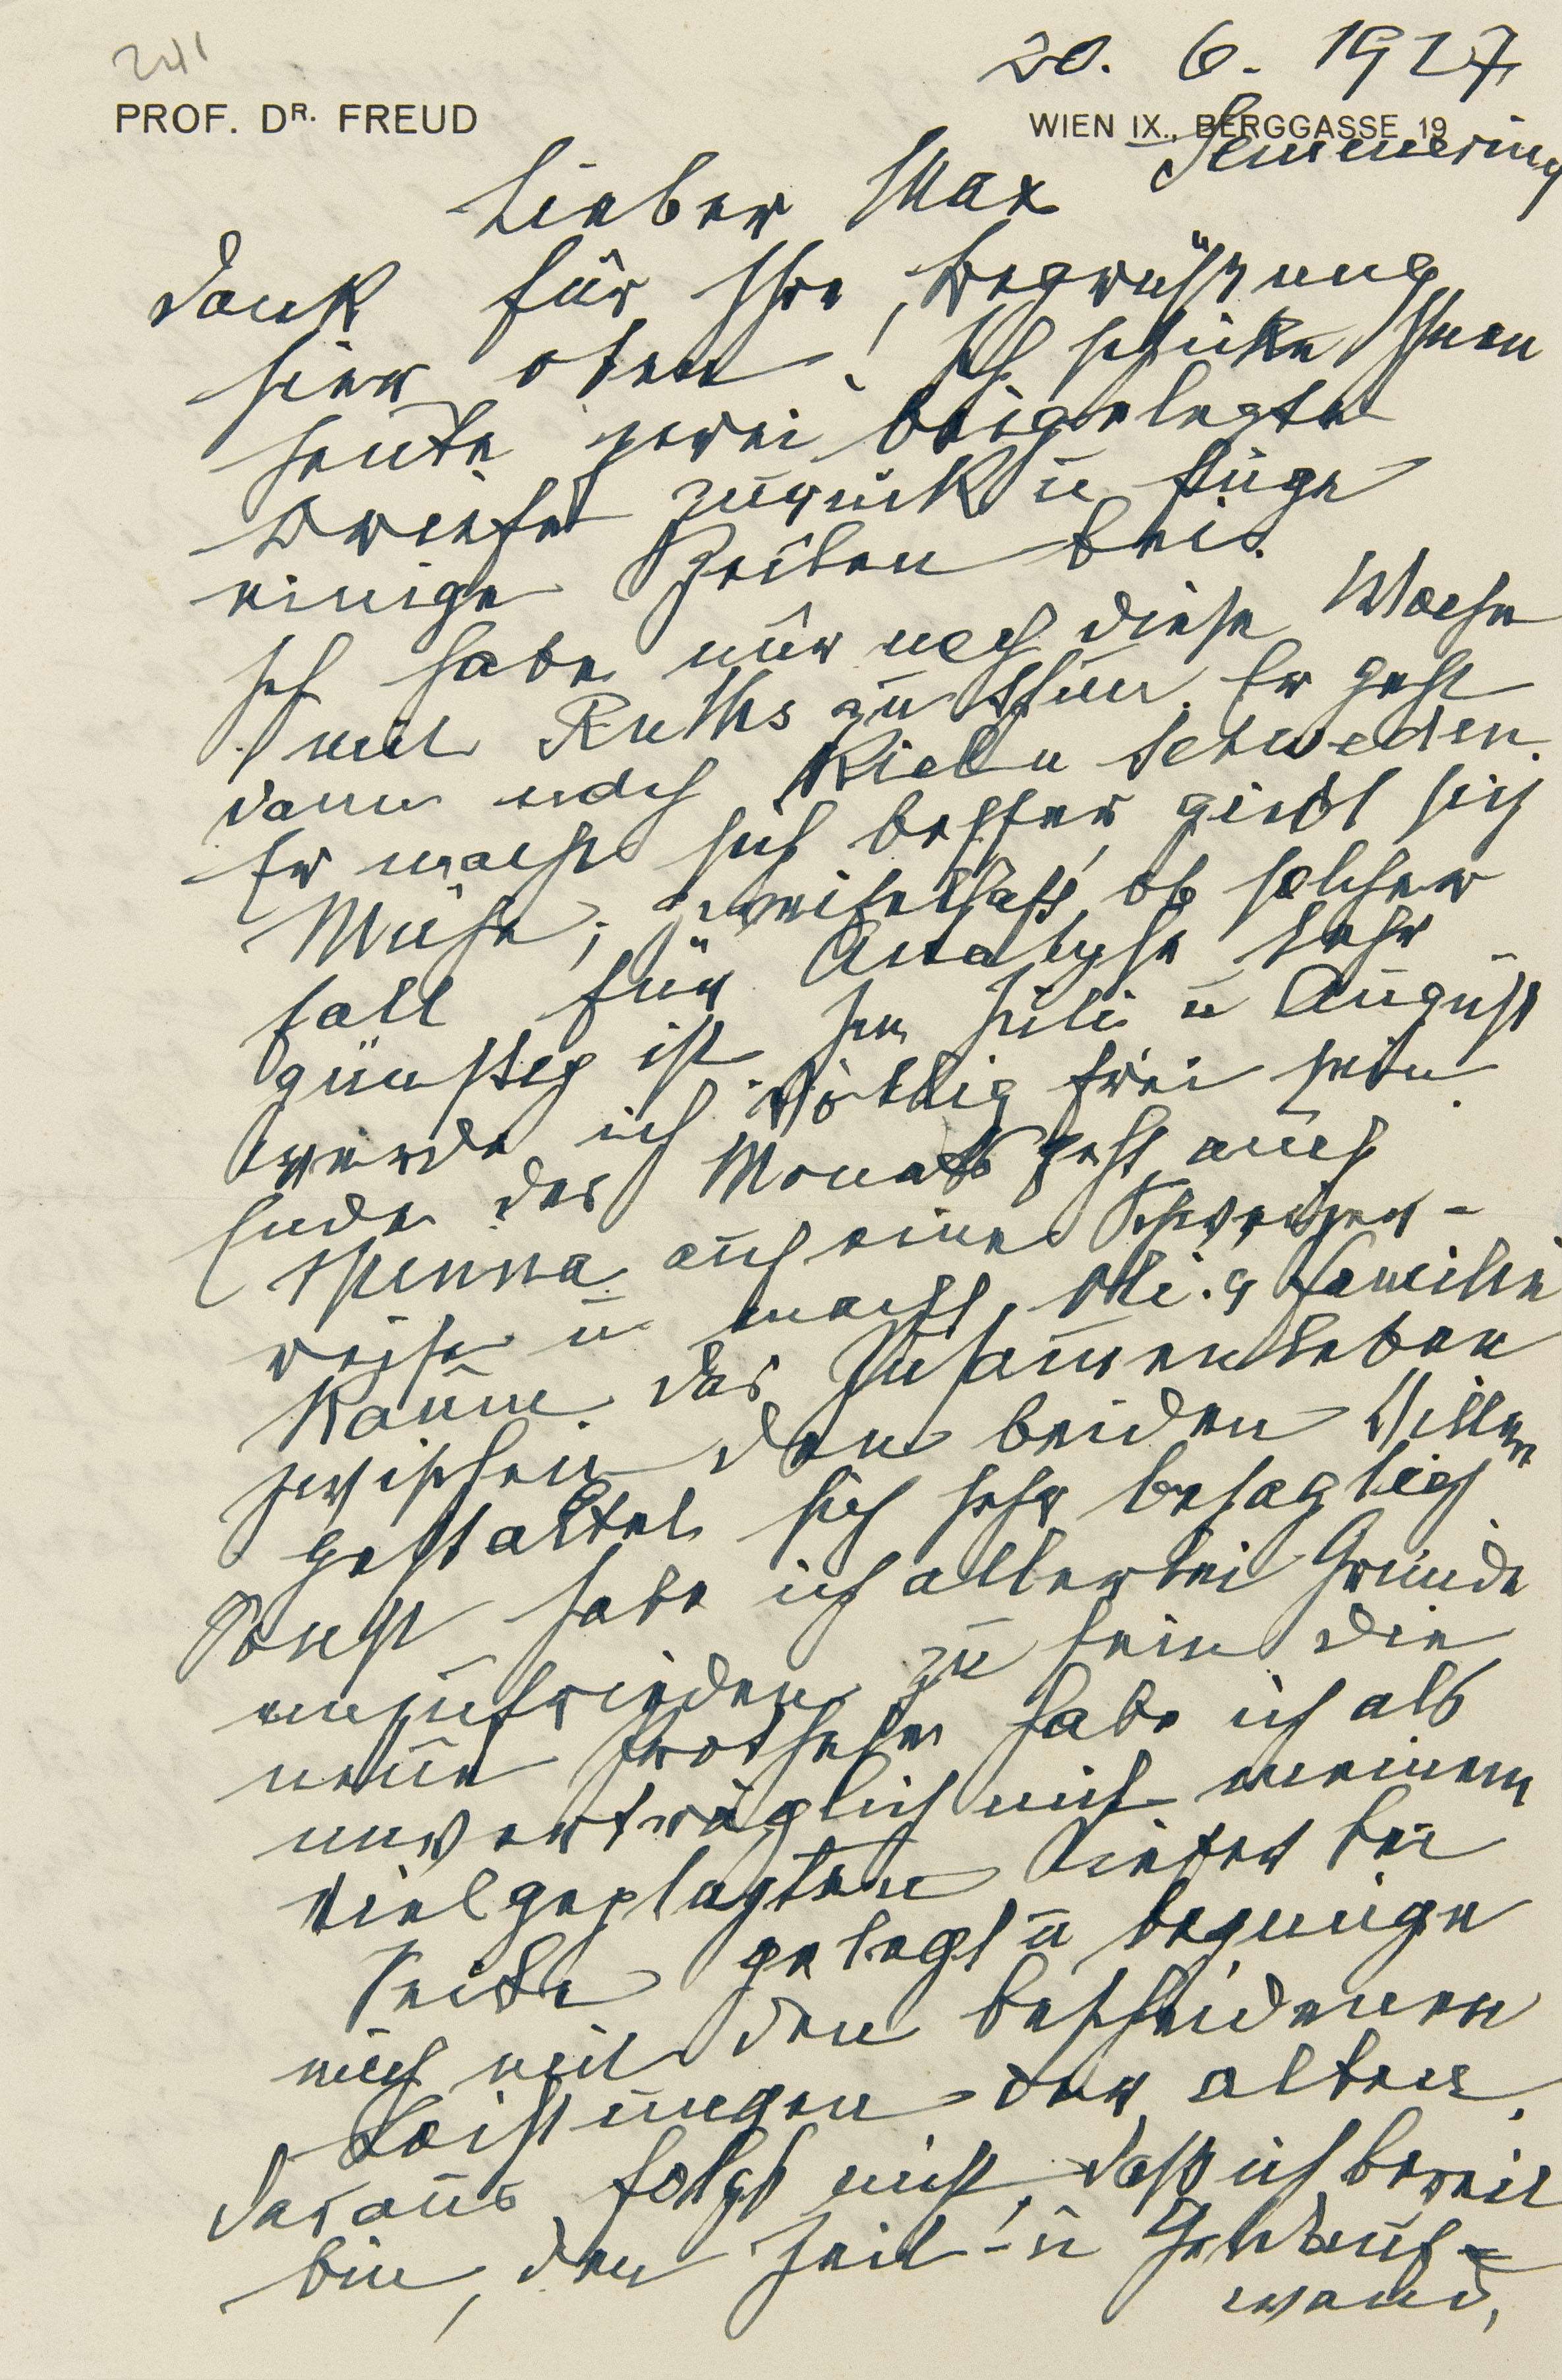 241
20. 6. 1927
PROF. DR. FREUD
WIEN IX., BERGGASSE 19
Semmering
Lieber Max
Dank für Ihre Begrüßung
hier oben! Ich schicke Ihnen
heute zwei beigelegte
Briefe zurück u füge
einige Zeilen bei.
Ich habe nur noch diese Woche
mit Ruths zu thun. Er geht
dann nach Kiel u Schweden.
Er macht sich besser, giebt sich
Mühe; zweifelhaft, ob solcher
Fall für Analyse sehr
günstig ist. Im Juli u August
werde ich völlig frei sein.
Ende des Monats geht auch
Minna auf eine Schweizer-
reise u macht, Familie
Raum. Das Zusammenleben
zwischen den beiden Villen
gestaltet sich sehr behaglich.
Sonst habe ich allerlei Gründe
unzufrieden zu sein die
neue Prothese habe ich als
unverträglich mit meinem
vielgeplagten Kiefer bei
Seite gelegt u begnüge
mich mit den bescheideneren
Leistungen der alten.
Daraus folgt nicht, daß ich bereit
bin, den Zeit- u Geldauf-
wand,